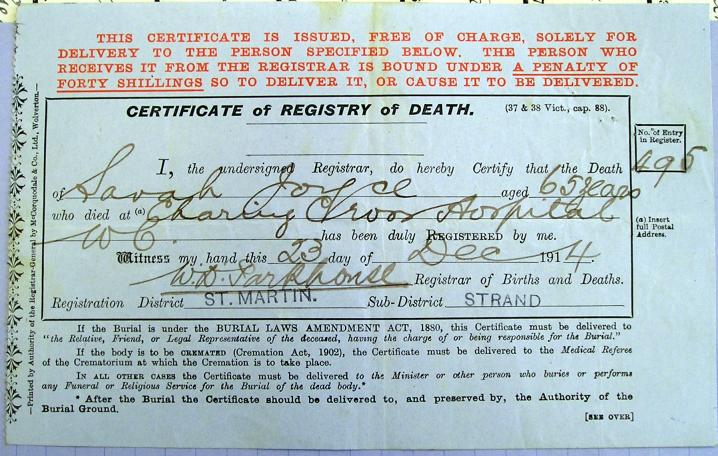 THIS CERTIFICATE IS ISSUED, FREE OF CHARGE, SOLELY FOR
DELIVERY TO THE PERSON SPECIFIED BELOW. THE PERSON WHO
RECEIVES IT FROM THE REGISTRAR IS BOUND UNDER A PENALTY OF
FORTY SHILLINGS SO TO DELIVER IT, OR CAUSE IT TO BE DELIVERED.
CERTIFICATE of REGISTRY of DEATH.
(37 & 38 Vict., cap. 88).
No. of Entry
in Register.
495
I, the undersigned Registrar, do hereby Certify that the Death
of Sarah Joyce aged 65 years
who died at (a) Charing Cross Hospital
(a) Insert
full Postal
Address.
W C. has been duly REGISTERED by me.
Witness my hand this 23 day of Dec 1914.
W.D. Parkhouse Registrar of Births and Deaths.
Registration District ST. MARTIN. Sub-District STRAND
If the Burial is under the BURIAL LAWS AMENDMENT ACT, 1880, this Certificate must be delivered to
"the Relative, Friend, or Legal Representative of the deceased, having the charge of or being responsible for the Burial."
If the body is to be CREMATED (Cremation Act, 1902), the Certificate must be delivered to the Medical Referee
of the Crematorium at which the Cremation is to take place.
IN ALL OTHER CASES the Certificate must be delivered to the Minister or other person who buries or performs
any Funeral or Religious Service for the Burial of the dead body.*
* After the Burial the Certificate should be delivered to, and preserved by, the Authority of the
Burial Ground.
[SEE OVER]
—Printed by Authority of the Registrar-General by McCorquodale & Co., Ltd., Wolverton.—